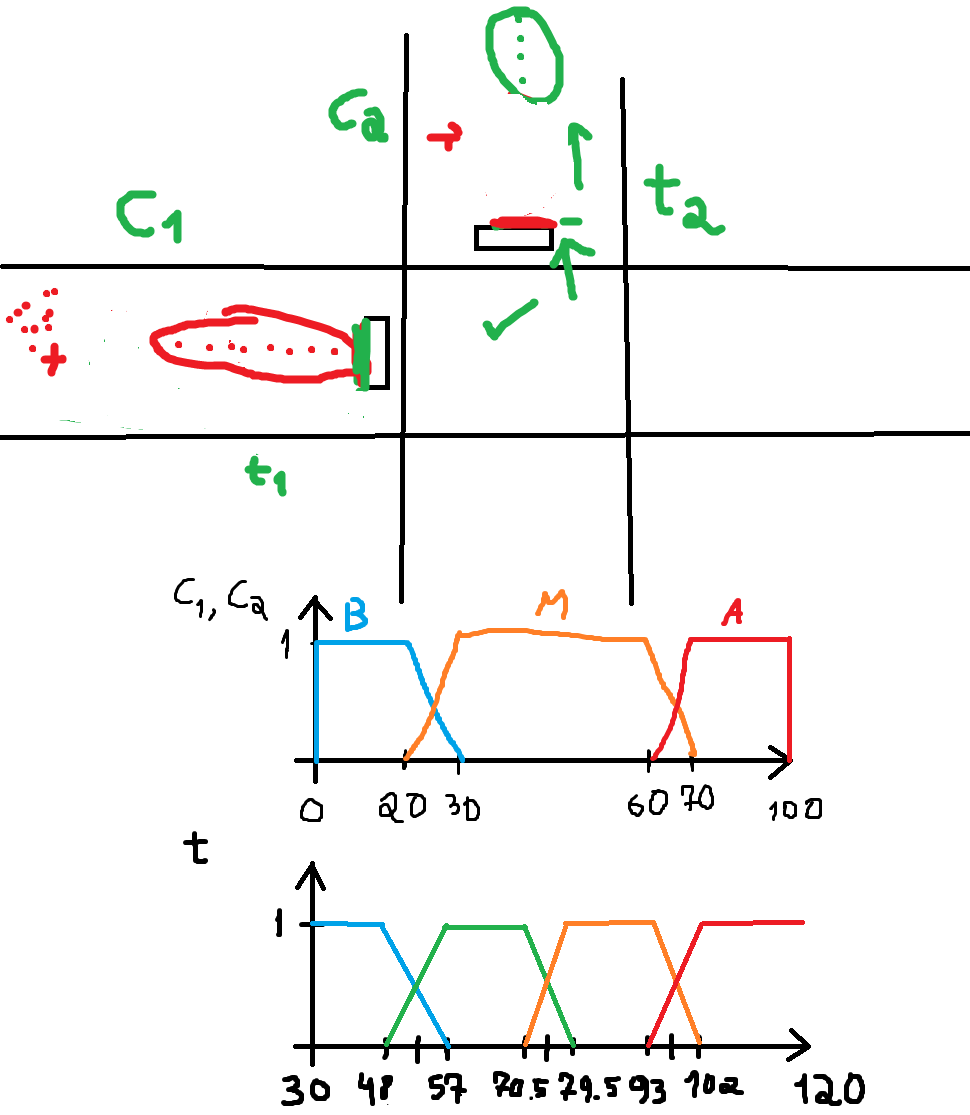 C2
t2
C1
t1
C1, C2
B M A
1
0 20 30 60 70 100
t
1
30 48 57 70.5 79.5 93 102 120